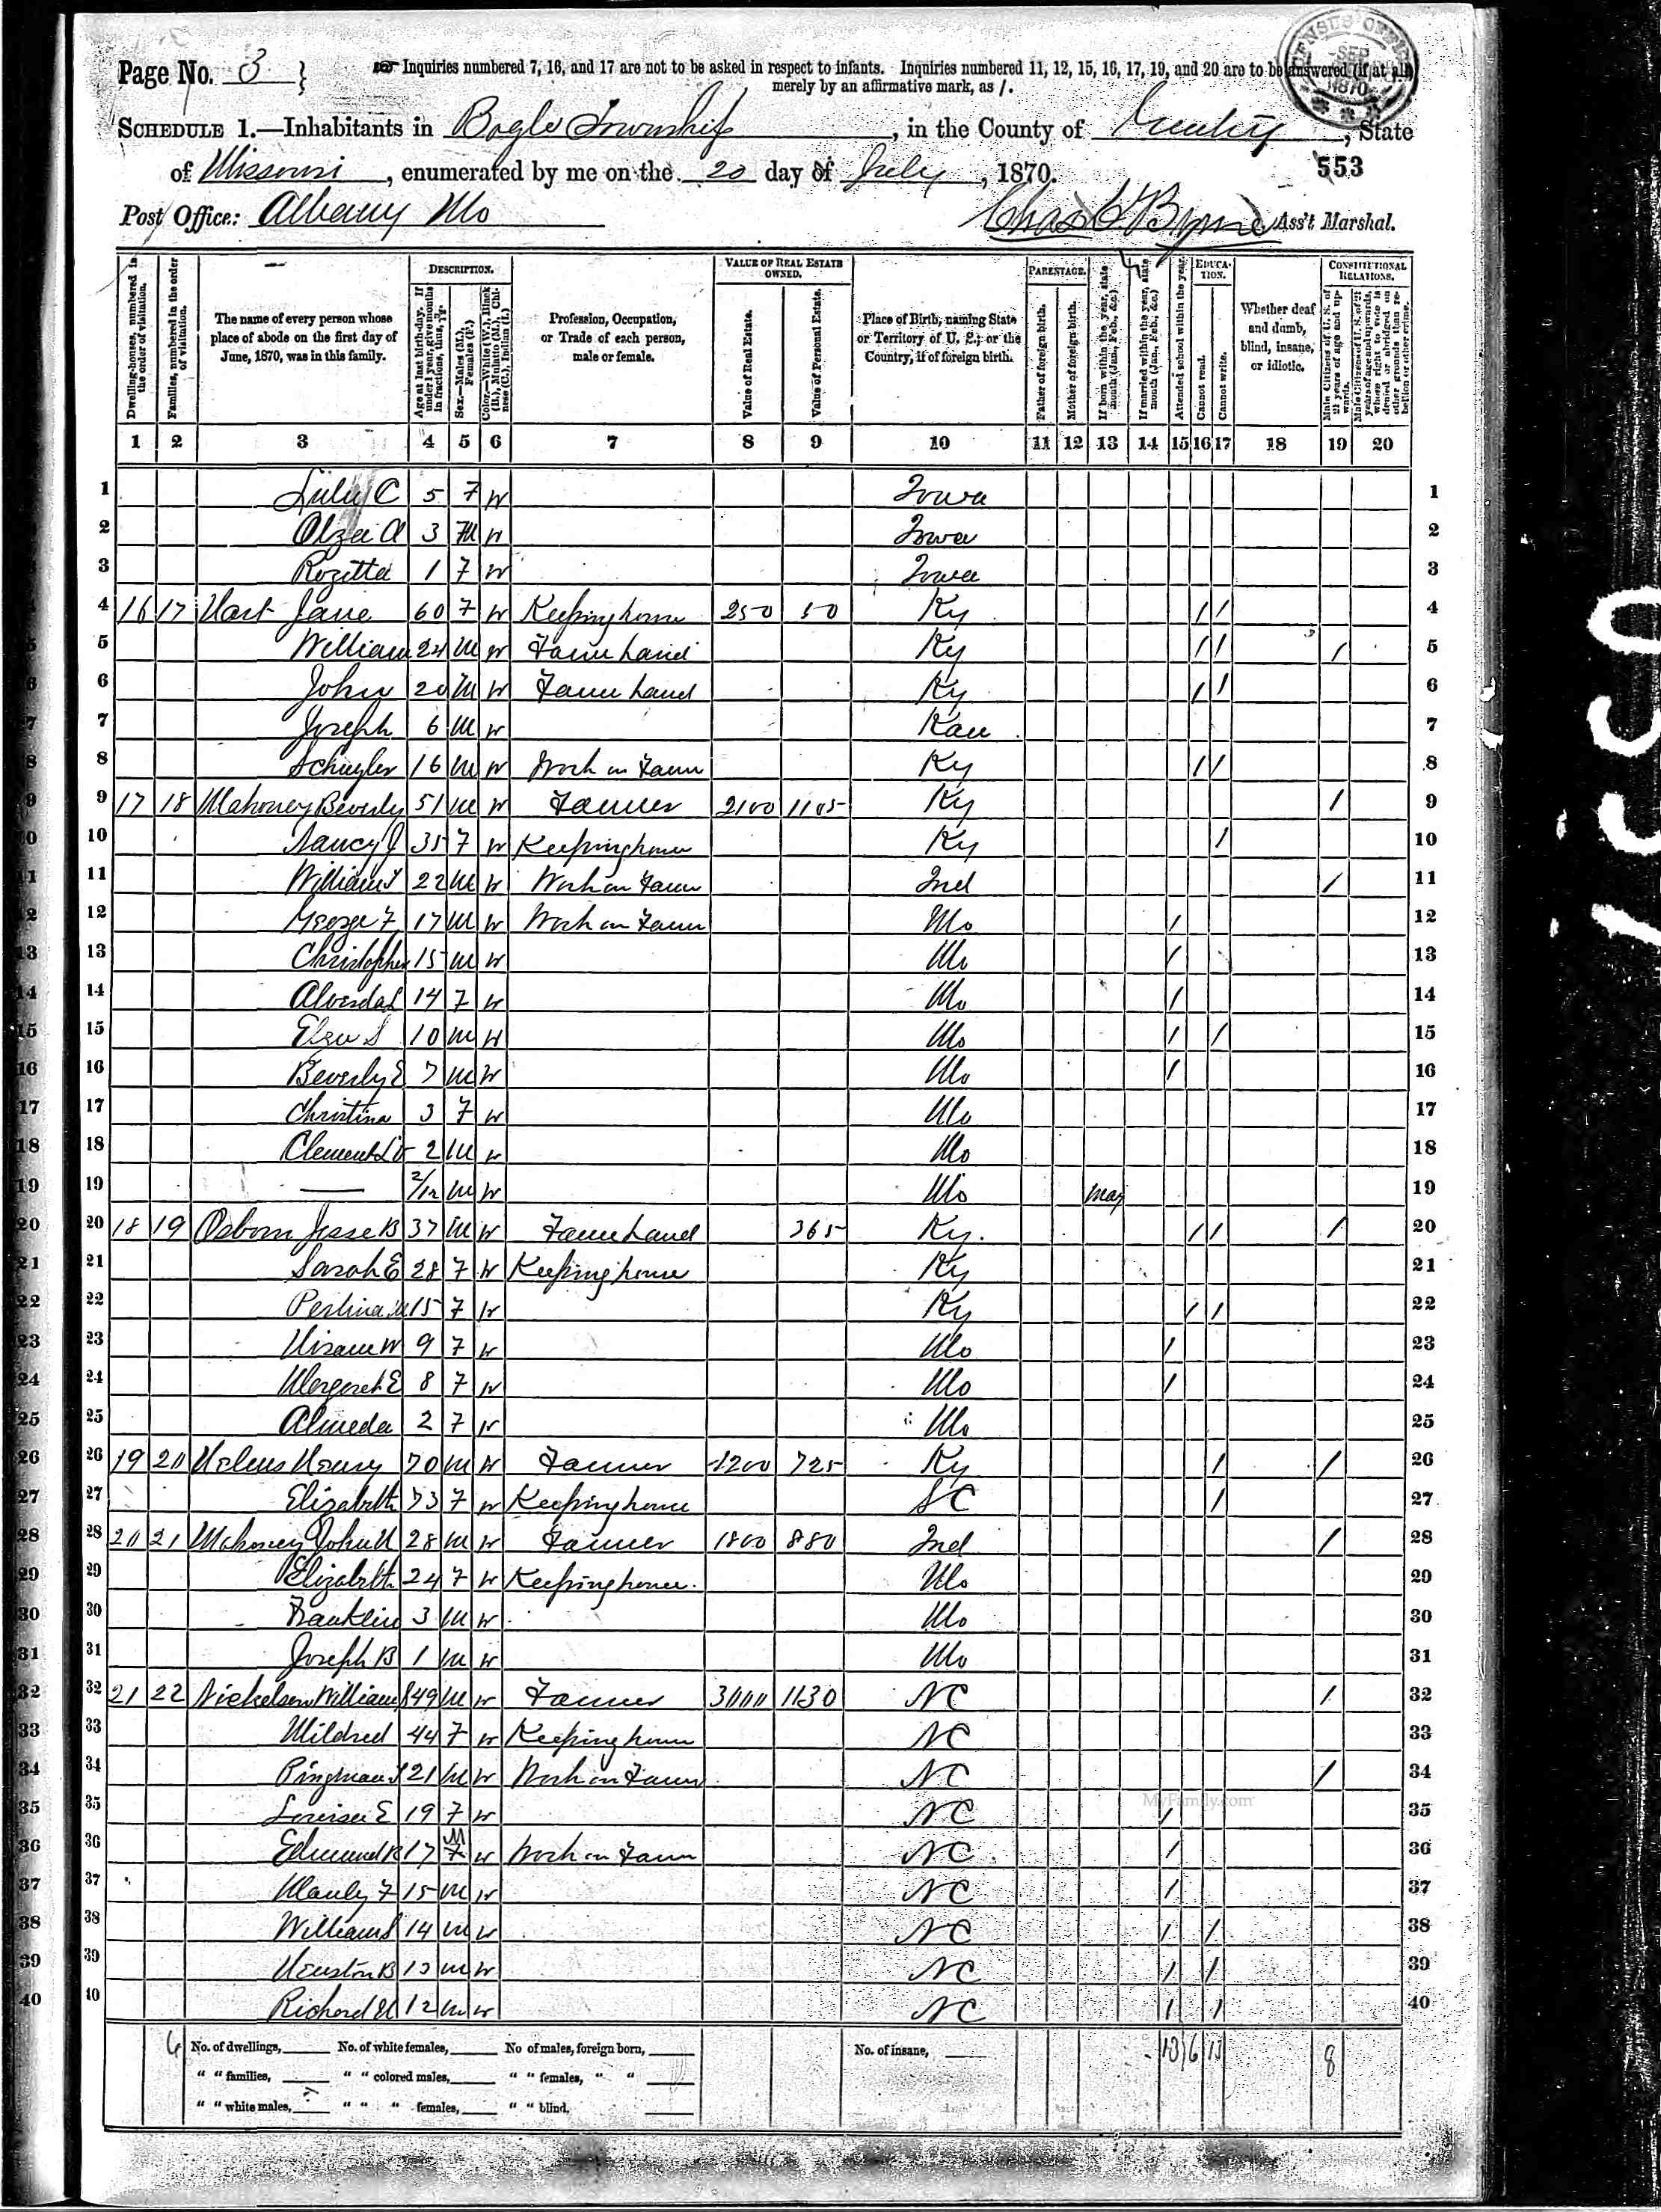 Page No. 3 } ☞ Inquiries numbered 7, 16, and 17 are not to be asked in respect to infants. Inquiries numbered 11, 12, 15, 16, 17, 19, and 20 are to be answered (if at all)
merely by an affirmative mark, as /.
CENSUS OFFICE SEP 1870
SCHEDULE 1.—Inhabitants in Bogle Township, in the County of Gentry, State
of Missouri, enumerated by me on the 20 day of July, 1870. 553
Post Office: Albany Mo Chas Byrne Ass't Marshal.
Dwelling-houses, numbered in the order of visitation.
Families, numbered in the order of visitation.
The name of every person whose place of abode on the first day of June, 1870, was in this family.
DESCRIPTION.
Age at last birth-day. If under 1 year, give months in fractions, thus, 3/12.
Sex.—Males (M.), Females (F.)
Color.—White (W.), Black (B.), Mulatto (M.), Chinese (C.), Indian (I.)
Profession, Occupation, or Trade of each person, male or female.
VALUE OF REAL ESTATE OWNED.
Value of Real Estate.
Value of Personal Estate.
Place of Birth, naming State or Territory of U. S.; or the Country, if of foreign birth.
PARENTAGE.
Father of foreign birth.
Mother of foreign birth.
If born within the year, state month (Jan., Feb., &c.)
If married within the year, state month (Jan., Feb., &c.)
Attended school within the year.
EDUCATION.
Cannot read.
Cannot write.
Whether deaf and dumb, blind, insane, or idiotic.
CONSTITUTIONAL RELATIONS.
Male Citizens of U. S. of 21 years of age and upwards.
Male Citizens of U. S. of 21 years of age and upwards, whose right to vote is denied or abridged on other grounds than rebellion or other crime.
1 2 3 4 5 6 7 8 9 10 11 12 13 14 15 16 17 18 19 20
1 C 5 F W Iowa 1
2 A 3 M W Iowa 2
3 Rozitta 1 F W Iowa 3
4 16 17 Hart Jane 60 F W Keeping house 250 50 Ky / / 4
5 William 24 M W Farm hand Ky / / / 5
6 John 20 M W Farm hand Ky / / 6
7 Joseph 6 M W Kan 7
8 Schuyler 16 M W Work on Farm Ky / / 8
9 17 18 Mahoney Beverly 51 M W Farmer 2100 1105 Ky / 9
10 Nancy J 35 F W Keeping house Ky / 10
11 William 22 M W Work on Farm Ind / 11
12 George F 17 M W Work on Farm Mo / 12
13 Christopher 15 M W Mo / 13
14 14 F W Mo / 14
15 S 10 M W Mo / / 15
16 Beverly E 7 M W Mo / 16
17 Christina 3 F W Mo 17
18 Clement 2 M W Mo 18
19 — 2/12 M W Mo May 19
20 18 19 Osborn Jesse B 37 M W Farm hand 365 Ky. / / / 20
21 Sarah E 28 F W Keeping house Ky 21
22 15 F W Ky / / 22
23 Hiram W 9 F W Mo / 23
24 Margaret E 8 F W Mo / 24
25 Almeda 2 F W Mo 25
26 19 20 Henry 70 M W Farmer 1200 725 Ky / / 26
27 Elizabeth 73 F W Keeping house S C / 27
28 20 21 Mahoney John 28 M W Farmer 1800 880 Ind / 28
29 Elizabeth 24 F W Keeping house Mo 29
30 Franklin 3 M W Mo 30
31 Joseph B 1 M W Mo 31
32 21 22 Nickelson William 49 M W Farmer 3000 1130 NC / 32
33 Mildred 44 F W Keeping house NC 33
34 21 M W Work on Farm NC / 34
MyFamily.com
35 Louisa E 19 F W NC / 35
36 Edmund B 17 M F W Work on Farm NC / 36
37 Manly F 15 M W NC / 37
38 William 14 M W NC / / 38
39 Houston B 13 M W NC / / 39
40 Richard 12 M W NC / / 40
6 No. of dwellings, No. of white females, No of males, foreign born, No. of insane, 13 6 13 8
" " families, " " colored males, " " females, " "
" " white males, " " " females, " " blind,